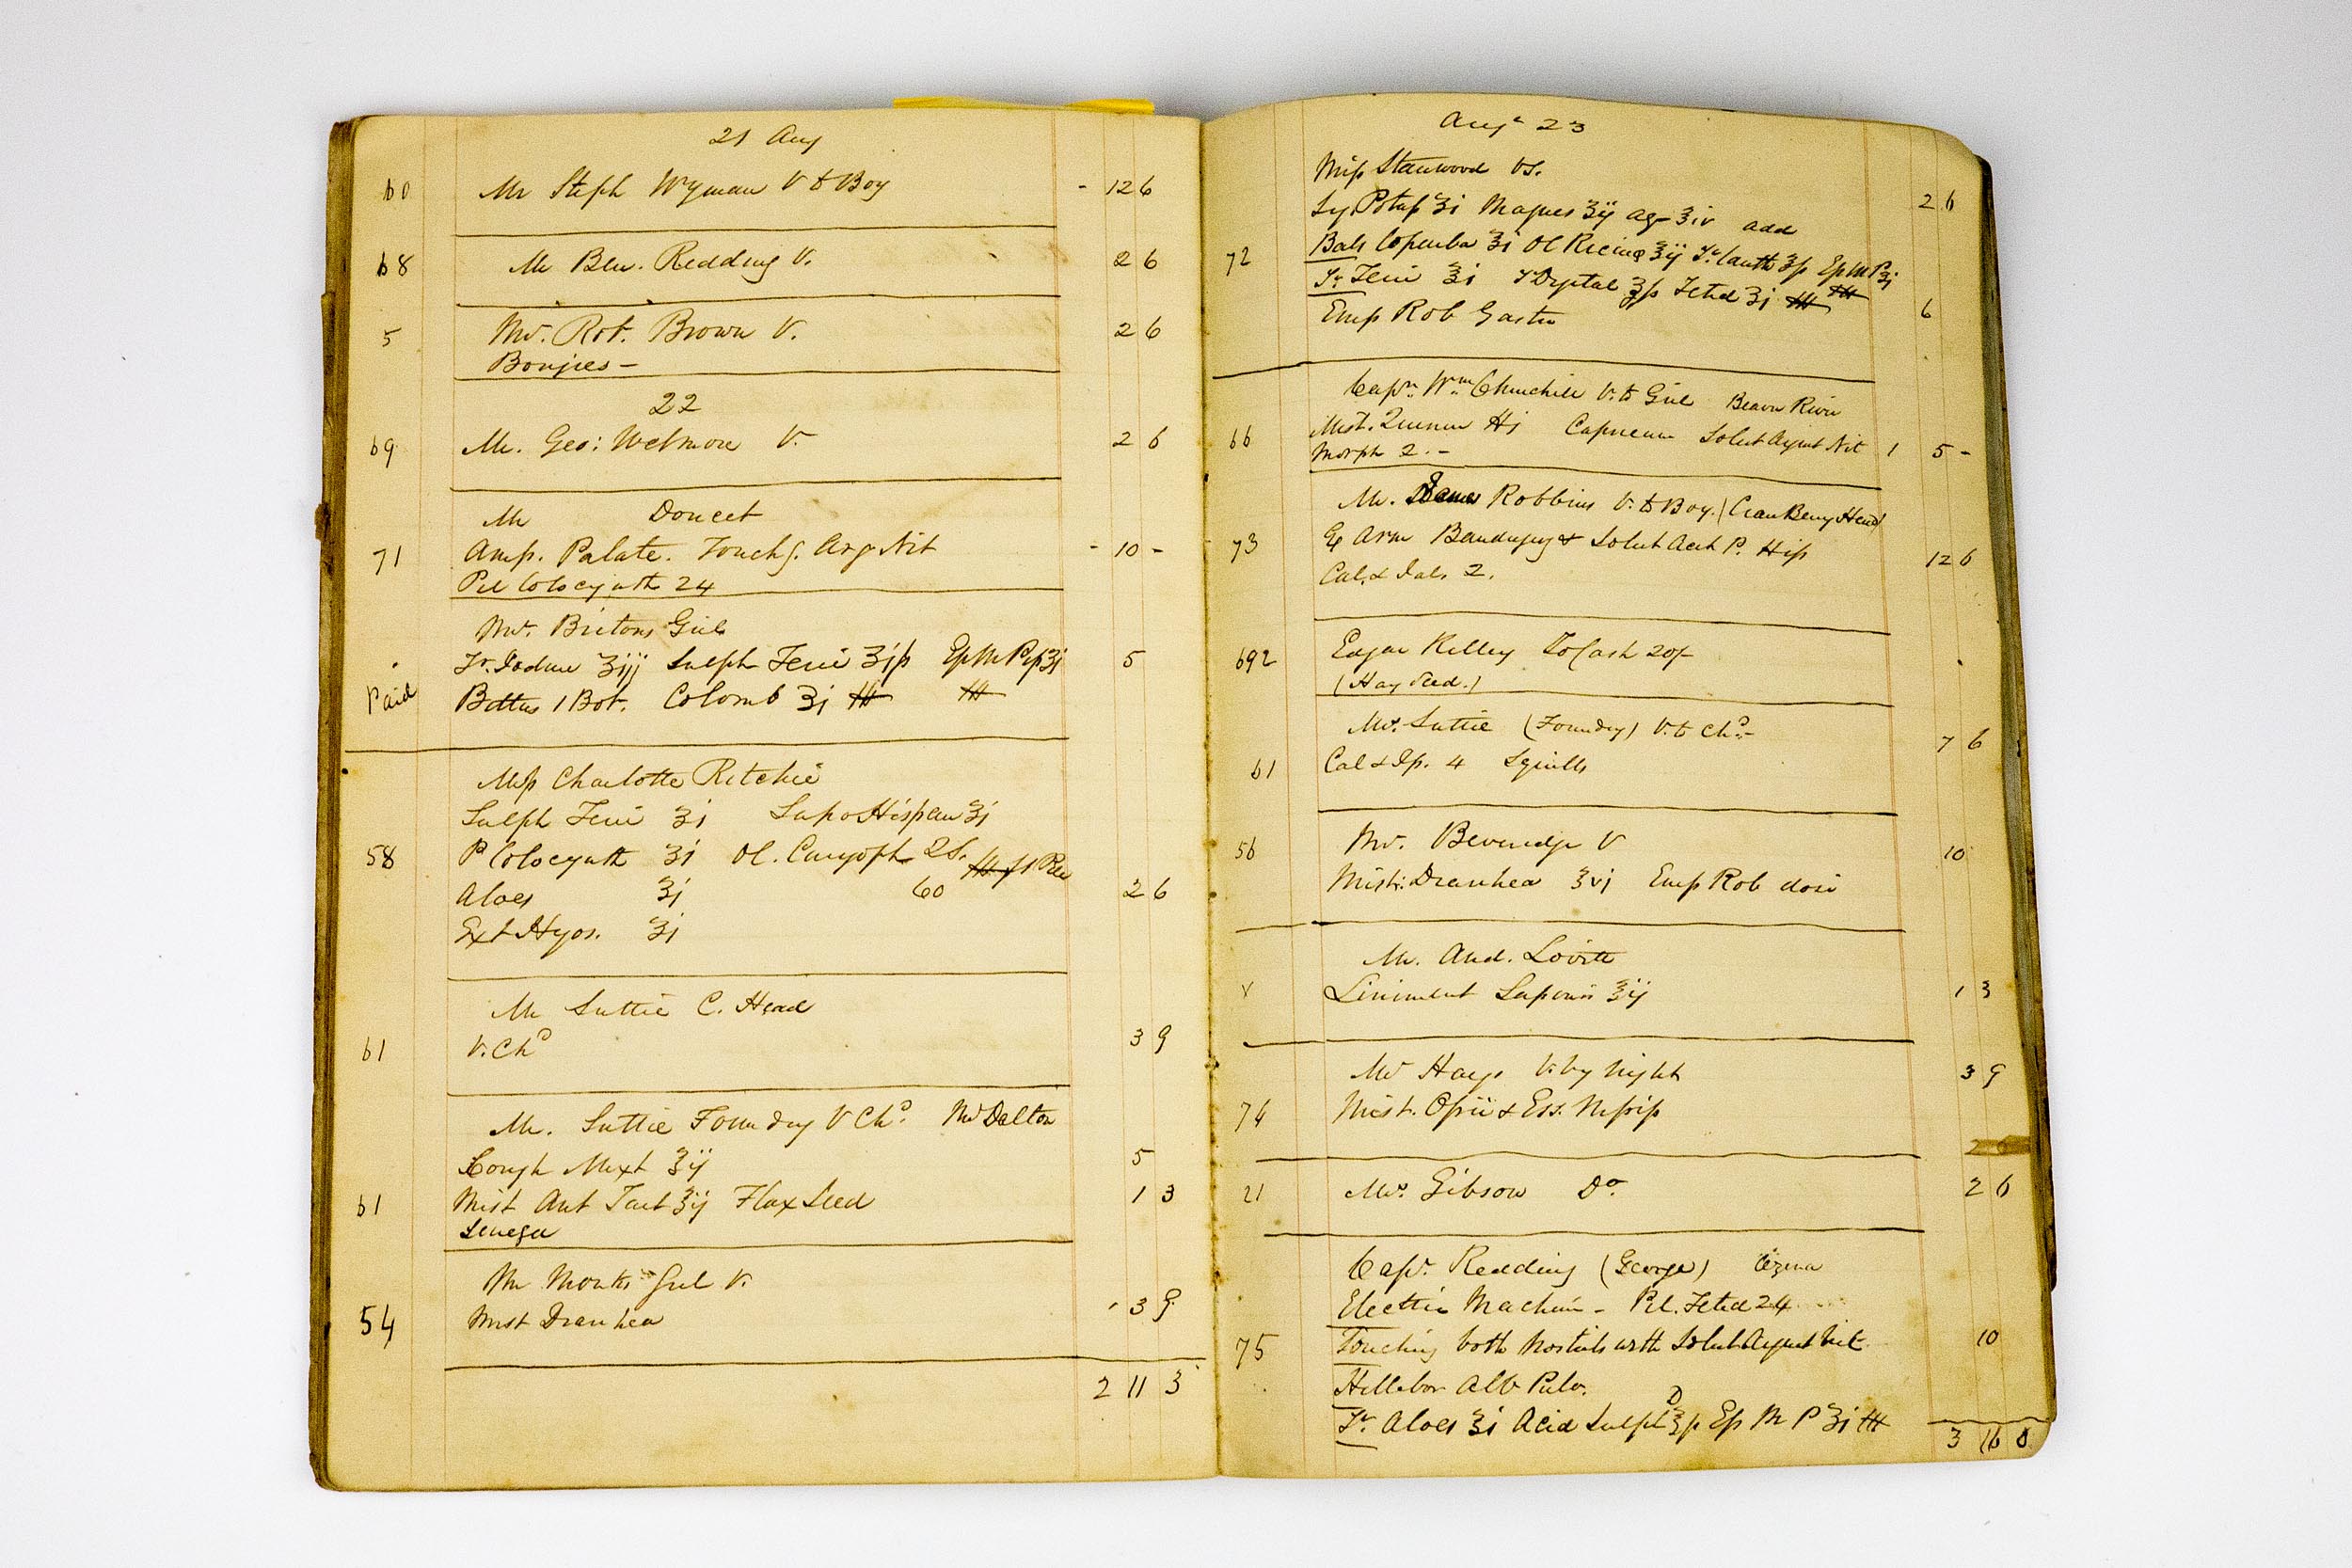 21 Aug
60 Mr Steph Wyman V to Boy - 12 6
68 Mr Ben. Redding V. 2 6
5 Mr. Rob. Brown V. 2 6
Boujies -
22
69 Mr. Geo: Wetmore V. 2 6
Mr Doucet
71 Amp. Palate. Touchg. Arg Nit - 10 -
Pil Colocynth 24
Mr. Britons Girl
Tr. Iodine ʒiij Sulph Ferri ʒjß Ep M Pip ʒj 5
Paid Bottus 1 Bot. Colomb ʒj
Miss Charlotte Ritchie
Sulph Ferri ʒj Sapo Hispan ʒj
58 P Colocynth ʒj Ol. Caryoph
Aloes ʒj 60 2 6
Ext Hyos. ʒj
Mr Suttie C. Head
61 V. Chd 3 9
Mr. Suttie Foundry V Chd. Mr Dalton
Cough Mixt ʒij 5
61 Mist Ant Tart ʒij Flax Seed 1 3
Senega
Mr Monks Girl V.
54 Mist Diarrhea - 3 9
2 11 3
Aug 23
Miss Stanwood VS. 2 6
Potass ʒi Magnes ʒij aq ʒiv add
72 Bals Copeuba ʒi Ol Ricini ʒij Tr. Canth ʒß Ep M P ʒj
Tr. Ferri ʒi Digital ʒß Fetid ʒj
Emp Rob Gastro 6
Capn. Wm. Churchill V. to Girl Beaver River
66 Mist. Quinine Capsicum Solut Argent Nit 1 5 -
Morph 2. -
Mr. James Robbins V. to Boy. (CranBerry Head)
73 Ex Arm Bandaging & Solut Acet P. Hip 12 6
Cal. & Jals 2.
692 Edgar Kelley To Cash 20/-
(Hay Seed.)
Mr. Suttie (Foundry) V. to Chd. - 7 6
61 Cal & Ip. 4 Squills
56 Mr. Beveridge V 10
Mist. Diarrhea ʒvj Emp Rob dorsi
Mr. And. Lovitt
x Liniment Saponis ʒij 1 3
Mr Hays V. by night 3 9
74 Mist. Opii & Ess. Mpip
21 Mrs. Gibson Do. 2 6
Capt. Redding (George) Ozena
Electric Machine - Pil. Fetid 24
75 Touching both nostrils with Solut Argent Nit 10
Hellebor Alb Pulv.
Tr. Aloes ʒi Acid Sulph D ʒß Ep M P ʒj
3 16 0